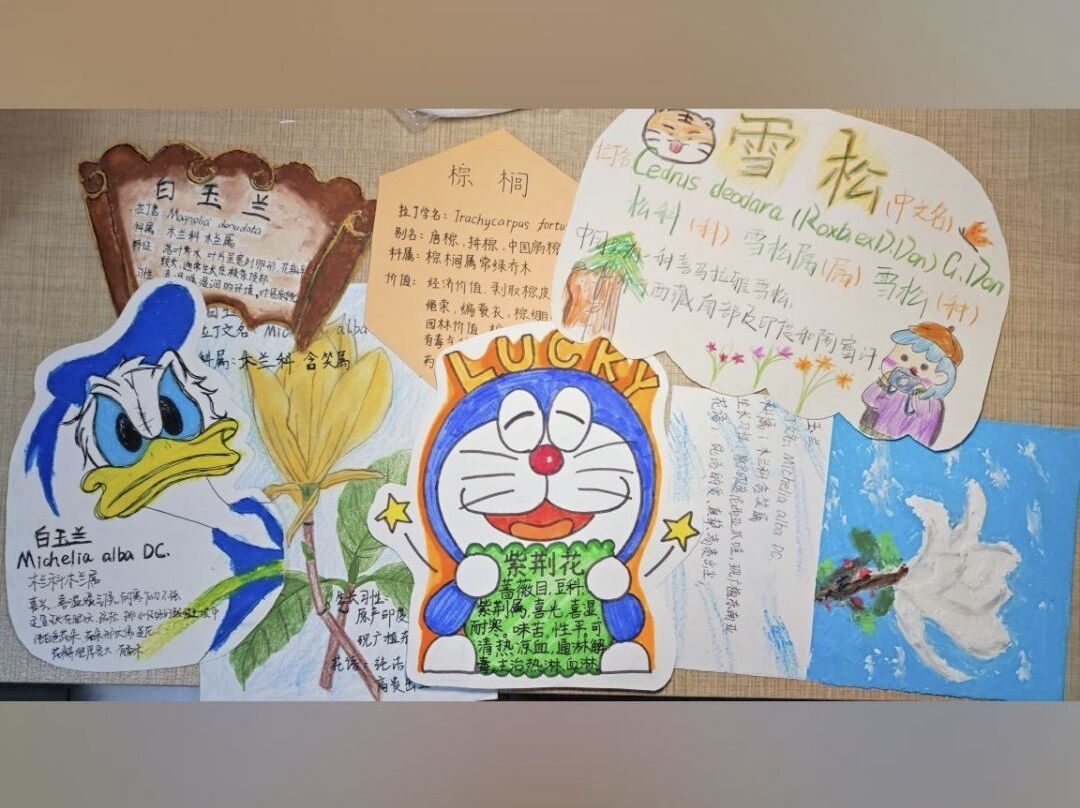 白玉兰
拉丁名: Magnolia denudata
科属: 木兰科 木兰属
特征:
习性:
棕榈
拉丁学名: Trachycarpus fortu
别名: 唐棕、拼棕、中国扇棕
科属: 棕榈属常绿乔木
价值: 经济价值、剥取棕皮
绳索、编蓑衣、棕绷
园林价值、棕
雪松(中文名)
拉丁名 Cednus deodara (Roxb.ex D.Don) G.Don
松科(科) 雪松属(属) 雪松(种)
中国
喜马拉雅雪松,
西藏南部及印度和阿富汗
拉丁文名: Mic alba
科属: 木兰科 含笑属
生长习性:
原产印度
现广植
花语: 纯洁
高贵出
LUCKY
紫荆花
蔷薇目,豆科,
紫荆属,喜光,喜湿
耐寒。味苦,性平,可
清热凉血,通淋解
毒,主治热淋,血淋,
白玉兰
Michelia alba DC.
木兰科木兰属
玉兰
丁文名: Michelia alba DC
科属: 木兰科含笑属
生长习性:
花语: 纯洁的爱、真挚、高贵出尘